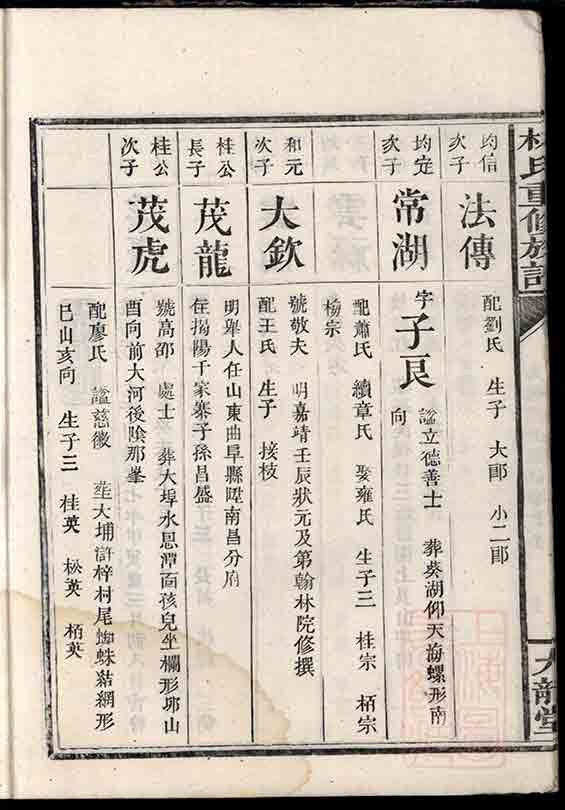 林氏重修族譜
九龍堂
均信
次子
法傳
配劉氏 生子 大郎 小二郎
均定
次子
常湖
字子良
諡立德善士 葬葵湖仰天海螺形南
向
配蕭氏 續章氏 娶雍氏 生子三 桂宗 栢宗
楊宗
和元
次子
大欽
號敬夫 明嘉靖壬辰狀元及第翰林院修撰
配王氏 生子 接枝
桂公
長子
茂龍
明舉人任山東曲阜縣陞南昌分府
住揭陽于家寨子孫昌盛
桂公
次子
茂虎
號高邵 處士 葬大埠水思潭面孩兒坐欄形夘山
酉向前大河後陰那峯
配廖氏 諡慈徽 葬大埔滸梓村尾蜘蛛結網形
巳山亥向 生子三 桂英 松英 栢英